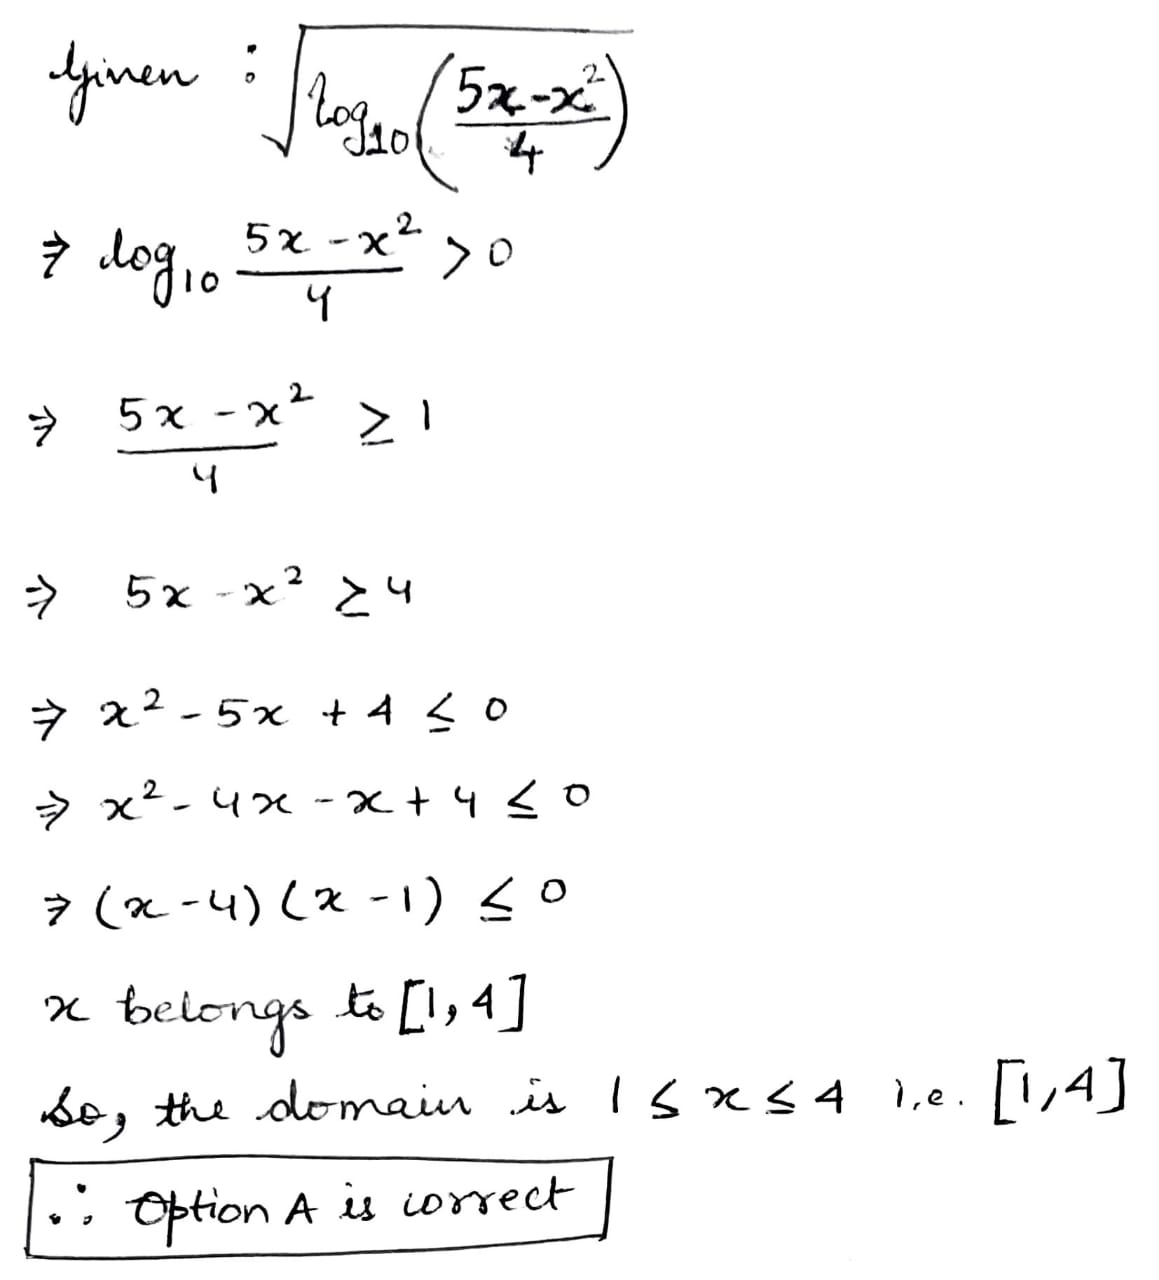 Given : √log₁₀((5x-x²)/4)
⇒ log₁₀ (5x-x²)/4 > 0
⇒ (5x-x²)/4 ≥ 1
⇒ 5x-x² ≥ 4
⇒ x²-5x+4 ≤ 0
⇒ x²-4x-x+4 ≤ 0
⇒ (x-4)(x-1) ≤ 0
x belongs to [1,4]
So, the domain is 1 ≤ x ≤ 4 i.e. [1,4]
∴ Option A is correct